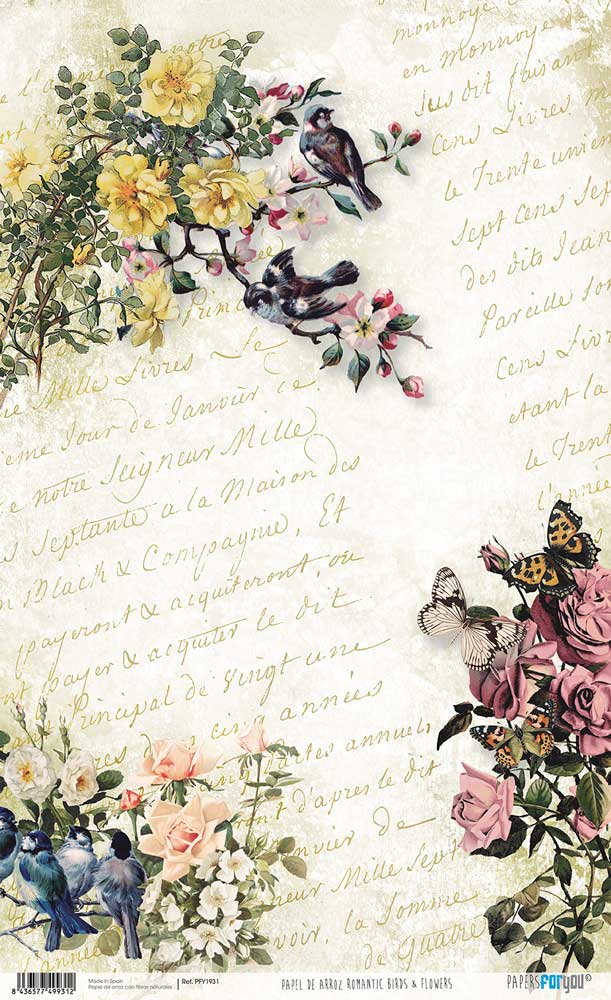 monnoye
notre
en monnoye de
l'anne
sus dit faisant
Cens Livres m
le Trente unien
Sept Cens Sep
des dits Jean
Pareille Som
Cens Livr
etant la
le Trent
l'année
Mille Livres Le
ieme Jour de Janvier ce
e notre Seigneur Mille
s Septante a la Maison des
n Black & Compagnie, Et
payeront & acquiteront, ou
nt payer & acquiter le dit
Principal de vingt une
res des cinq années
ng Partes annuel,
ont d'apres le dit
anvier de
neur Mille Sept
voir, la Somme
de Quatre
l'année
8 436577 499312
Made in Spain
Papel de arroz con fibras naturales
Ref. PFY1931
PAPEL DE ARROZ ROMANTIC BIRDS & FLOWERS
PAPERSFORyou©